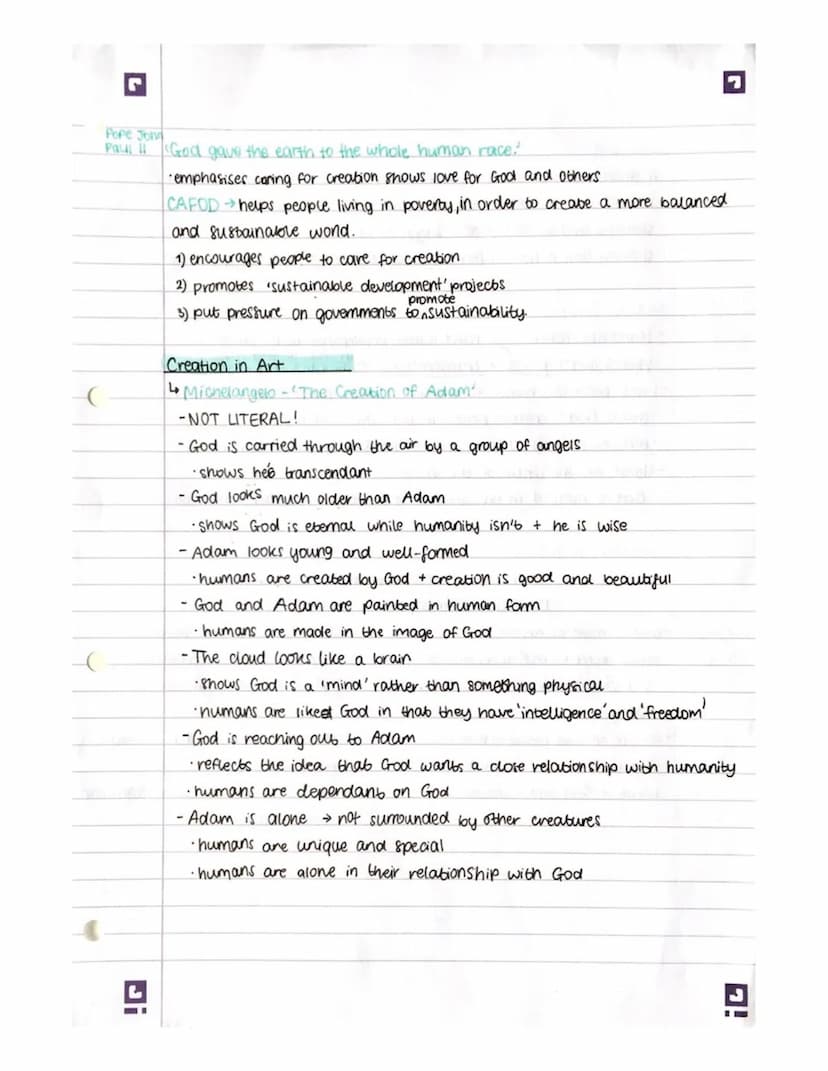 Pope John
Paul II 'God gave the earth to the whole human race.'
·emphasises caring for creation shows love for God and others
CAFOD → helps people living in poverty, in order to create a more balanced
and sustainable world.
1) encourages people to care for creation
2) promotes 'sustainable development' projects
3) put pressure on governments to ^promote sustainability.
Creation in Art
↳ Michelangelo - 'The Creation of Adam'
- NOT LITERAL!
- God is carried through the air by a group of angels
· shows he's transcendant
- God looks much older than Adam
· shows God is eternal while humanity isn't + he is wise
- Adam looks young and well-formed
· humans are created by God + creation is good and beautiful
- God and Adam are painted in human form
· humans are made in the image of God
- The cloud looks like a brain
· shows God is a 'mind' rather than something physical
· humans are like God in that they have 'intelligence' and 'freedom'
- God is reaching out to Adam
· reflects the idea that God wants a close relationship with humanity
· humans are dependant on God
- Adam is alone → not surrounded by other creatures
· humans are unique and special
· humans are alone in their relationship with God